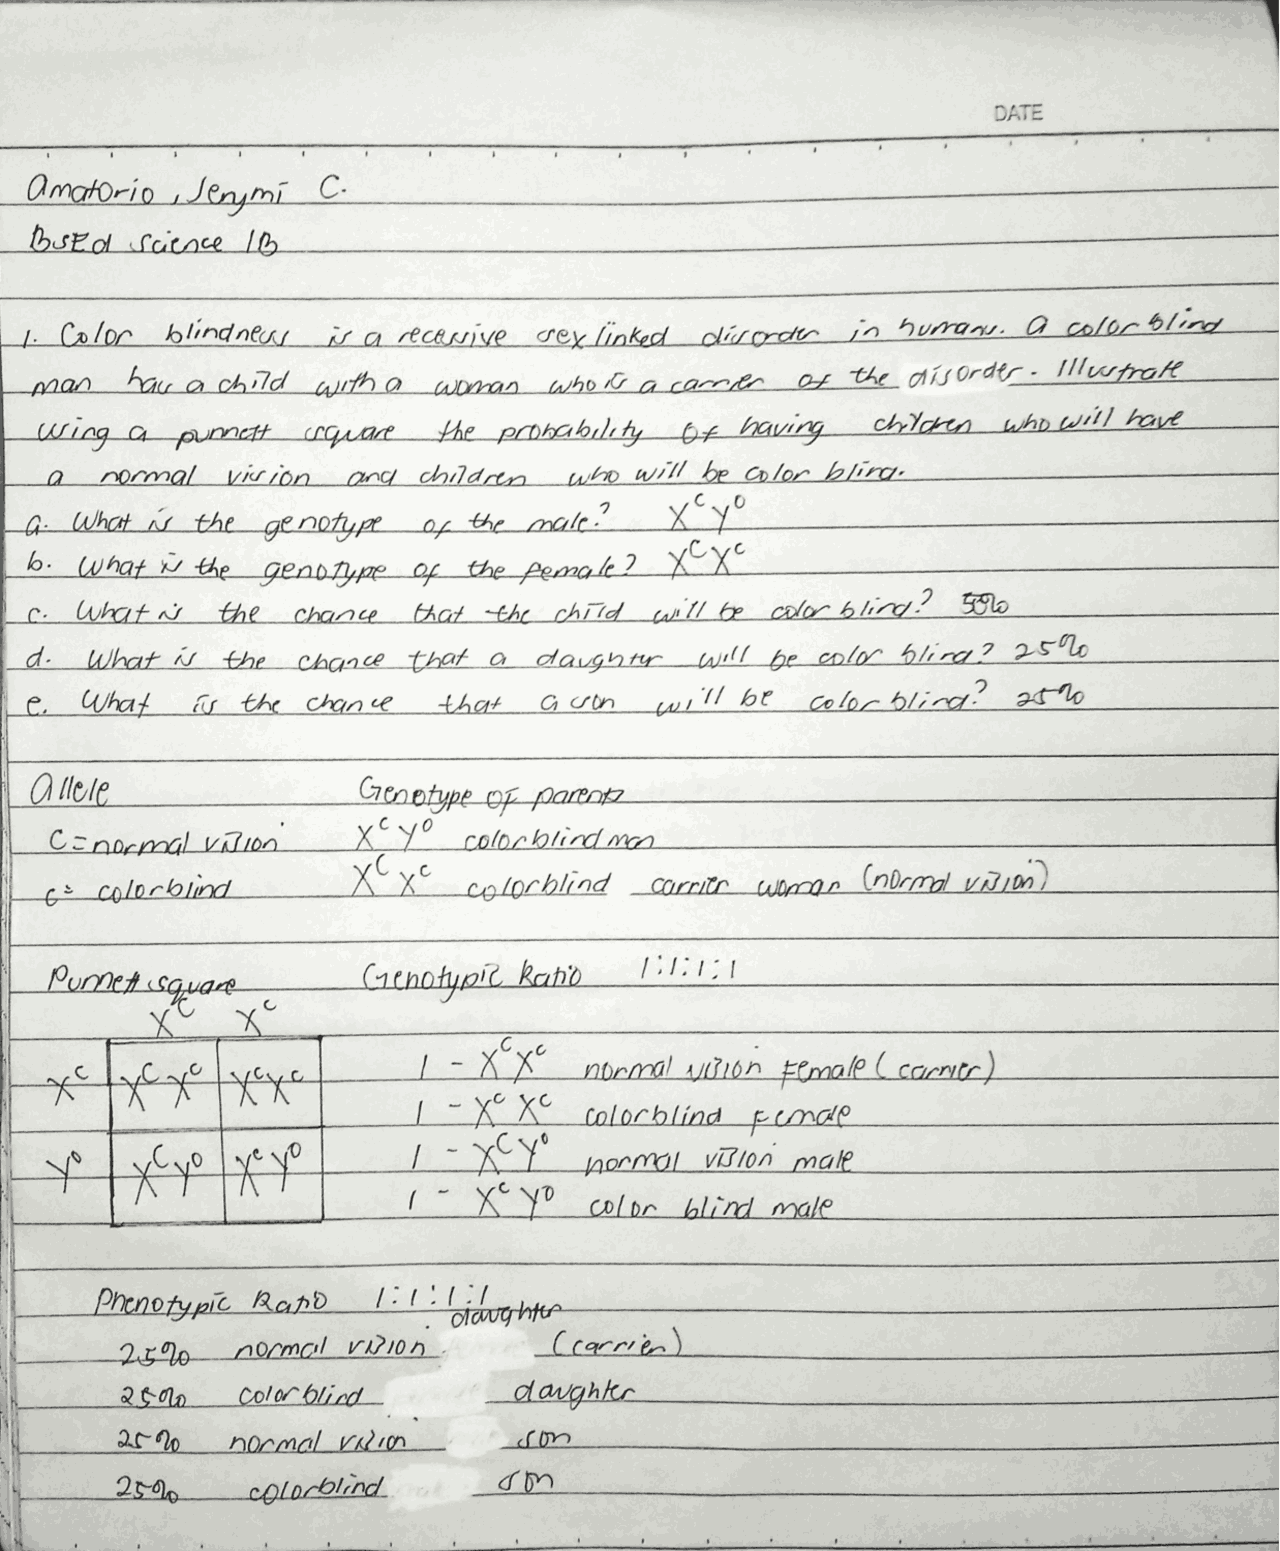 DATE
Amatorio, Jenymi C.
BSEd Science 1B
1. Color blindness is a recessive sex linked disorder in humans. A color blind
man has a child with a woman who is a carrier of the disorder. Illustrate
using a punnett square the probability of having children who will have
a normal vision and children who will be color blind.
a. What is the genotype of the male? XᶜY⁰
b. What is the genotype of the female? XCXᶜ
c. What is the chance that the child will be color blind? 50%
d. What is the chance that a daughter will be color blind? 25%
e. What is the chance that a son will be color blind? 25%
Allele Genotype of parents
C = normal vision XᶜY⁰ colorblind man
c = colorblind XCXᶜ colorblind carrier woman (normal vision)
Punnett square Genotypic Ratio 1:1:1:1
XC Xᶜ
Xᶜ XCXᶜ XᶜXᶜ 1 - XCXᶜ normal vision female (carrier)
1 - XᶜXᶜ colorblind female
Y⁰ XCY⁰ XᶜY⁰ 1 - XCY⁰ normal vision male
1 - XᶜY⁰ color blind male
Phenotypic Ratio 1:1:1:1
25% normal vision daughter (carrier)
25% colorblind daughter
25% normal vision son
25% colorblind son